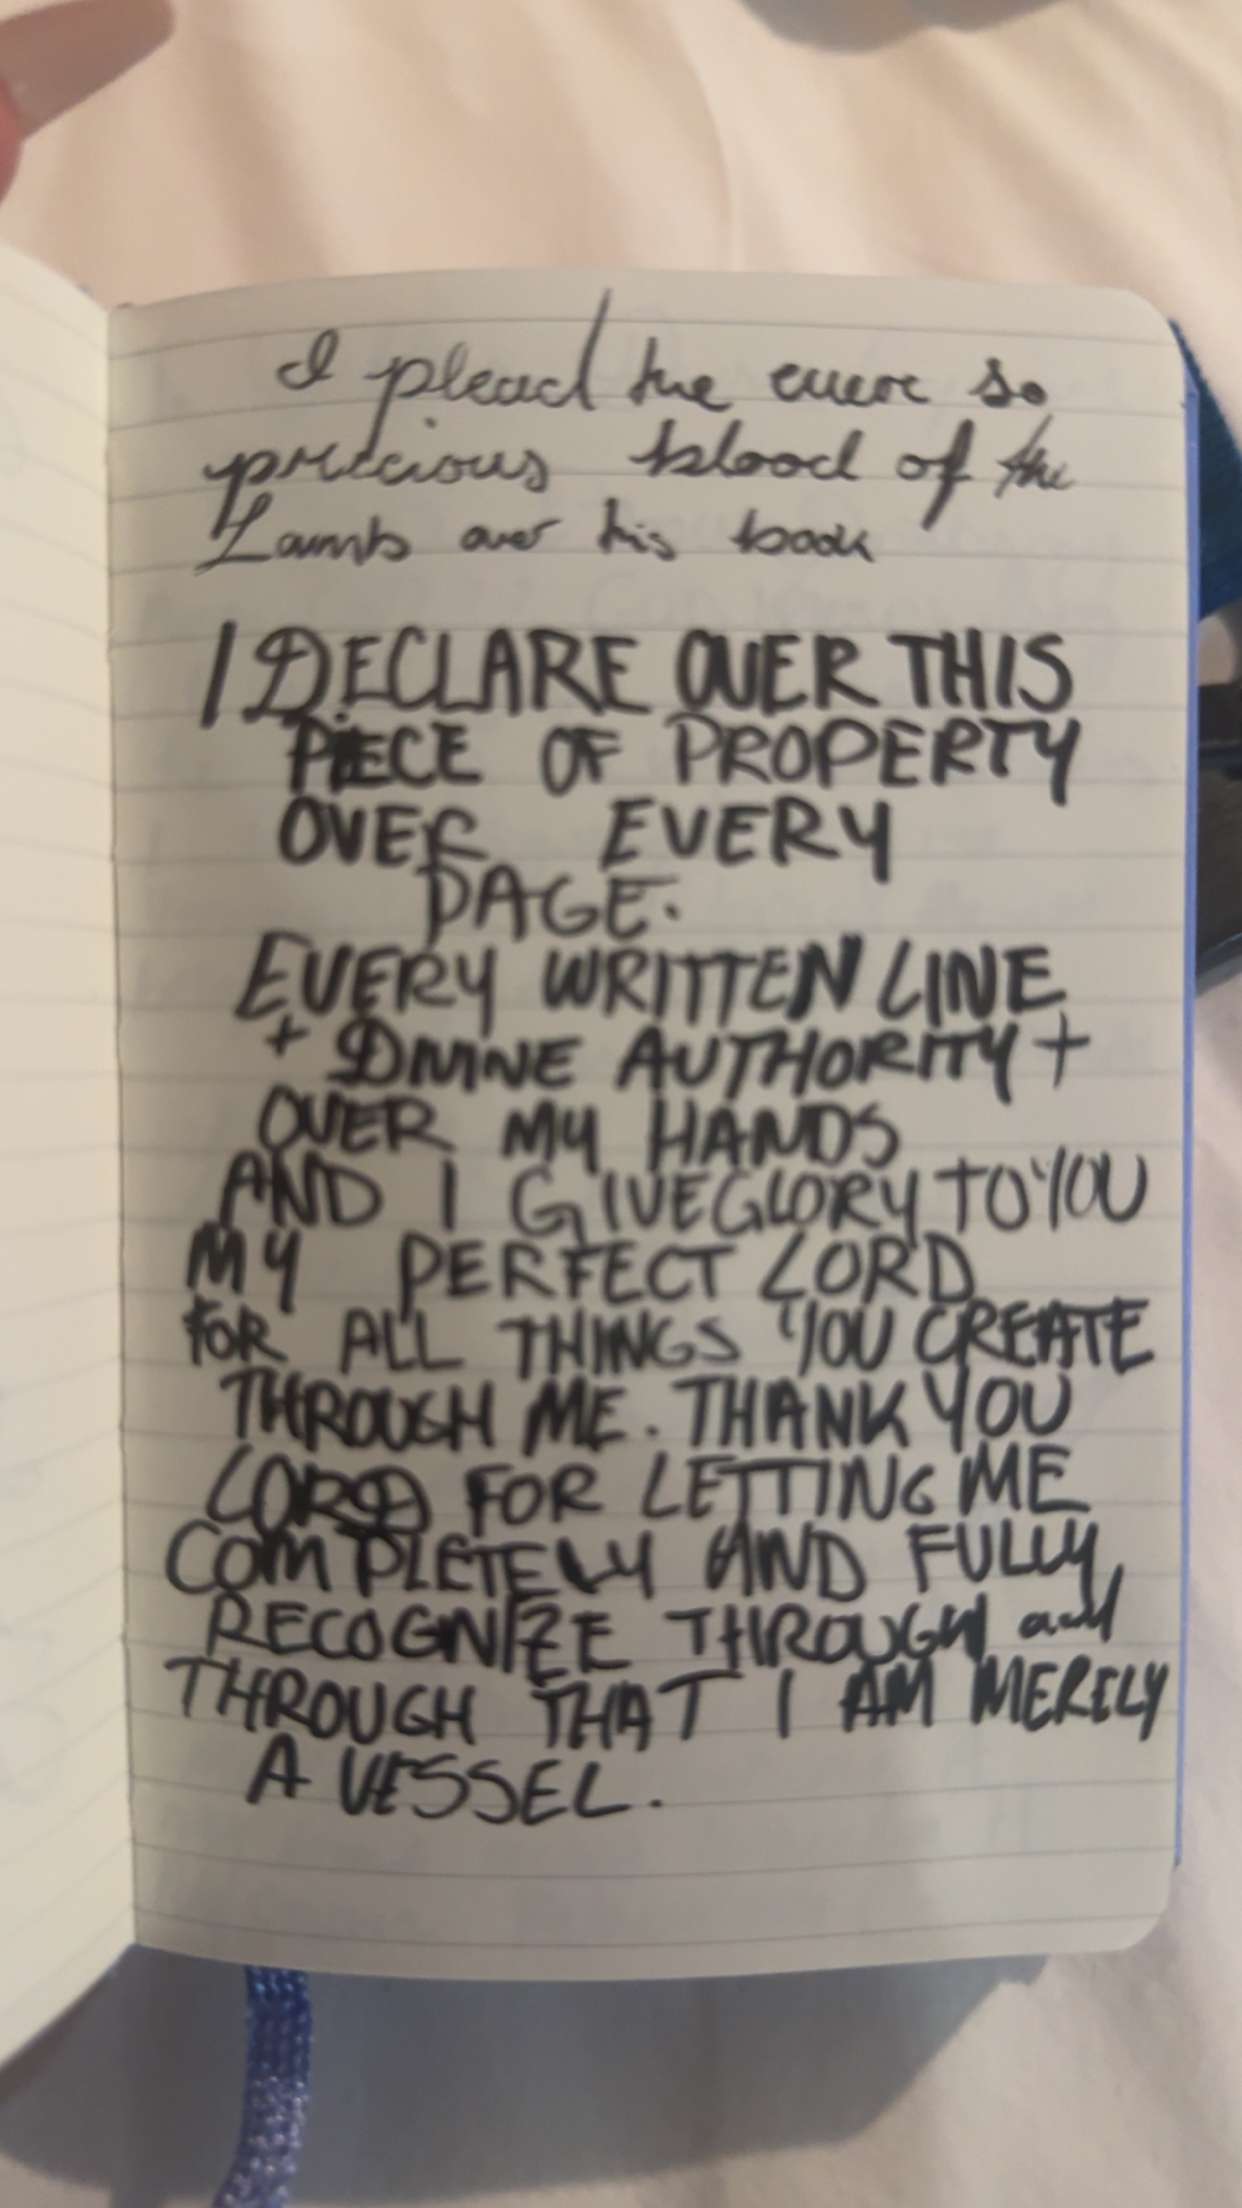 I plead the ever so
precious blood of the
Lamb over this book
I DECLARE OVER THIS
PIECE OF PROPERTY
OVER EVERY
PAGE.
EVERY WRITTEN LINE
+ DIVINE AUTHORITY +
OVER MY HANDS
AND I GIVE GLORY TO YOU
MY PERFECT LORD
FOR ALL THINGS YOU CREATE
THROUGH ME. THANK YOU
LORD FOR LETTING ME
COMPLETELY AND FULLY
RECOGNIZE THROUGH and
THROUGH THAT I AM MERELY
A VESSEL.